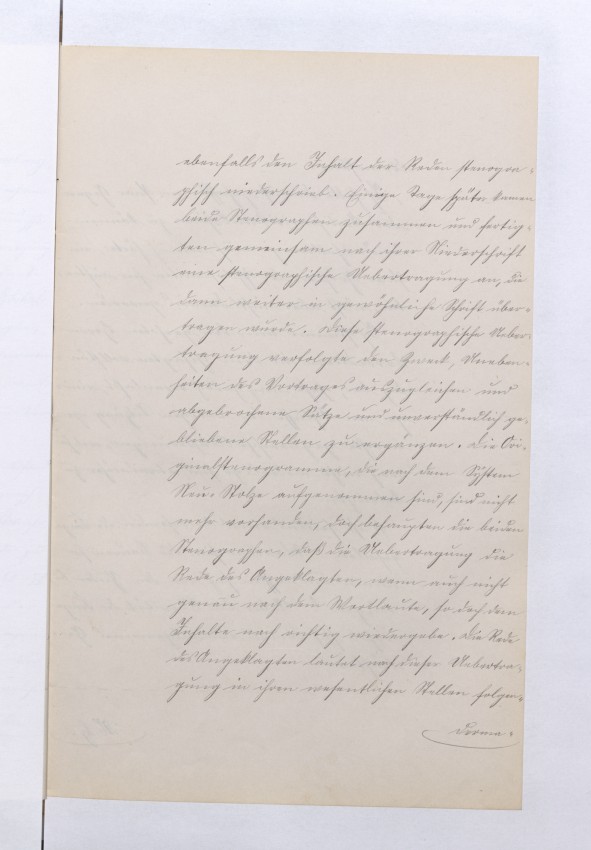 ebenfalls den Inhalt der Reden stenogra-
phisch niederschrieb. Einige Tage später kamen
beide Stenographen zusammen und fertig-
ten gemeinsam nach ihrer Niederschrift
eine stenographische Uebertragung an, die
dann weiter in gewöhnliche Schrift über-
tragen wurde. Diese stenographische Ueber-
tragung verfolgte den Zweck, Uneben-
heiten des Vortrages auszugleichen und
abgebrochene Sätze und unverständlich ge-
bliebene Stellen zu ergänzen. Die Ori-
ginalstenogramme, die nach dem System
Neu-Stolze aufgenommen sind, sind nicht
mehr vorhanden, doch behaupten die beiden
Stenographen, daß die Uebertragung die
Rede des Angeklagten, wenn auch nicht
genau nach dem Wortlaute, so doch dem
Inhalte nach richtig wiedergebe. Die Rede
des Angeklagten lautet nach dieser Uebertra-
gung in ihren wesentlichen Stellen folgen-
derma-